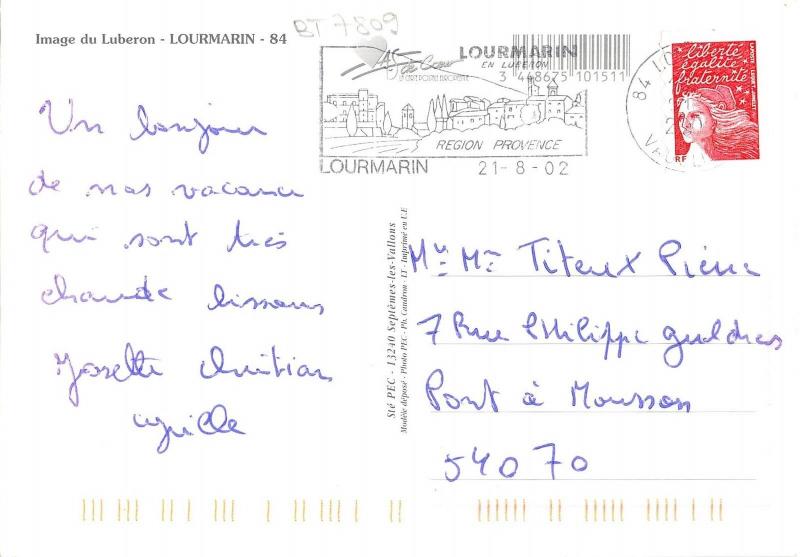 Image du Luberon - LOURMARIN - 84
BT 7809
LOURMARIN
EN LUBERON
3 448675 101511
REGION PROVENCE
LOURMARIN 21-8-02
84 LO
liberté
égalité
fraternité
RF
LA POSTE
Un bonjour
de nos vacance
qui sont très
chaude bissous
Josette Christian
Sté PEC - 13240 Septèmes-les-Vallons
Modèle déposé - Photo PEC - Ph. Candron - IT - Imprimé en U.E
Mr Me Titeux Pierre
7 Rue Philippe gueldres
Pont à Mousson
54070